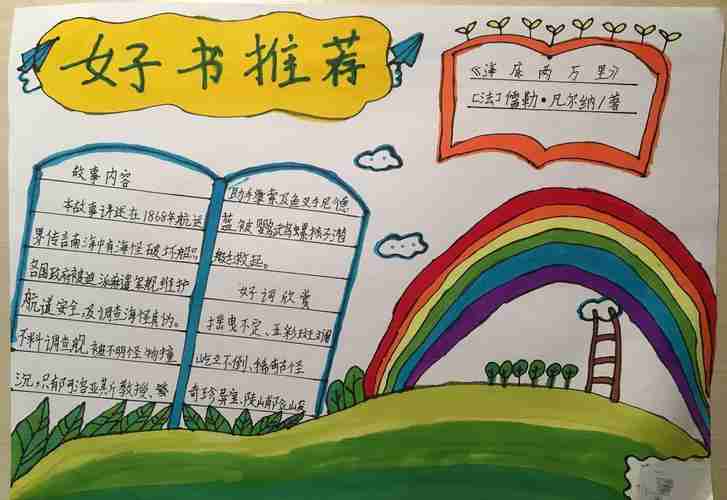 好书推荐
《海底两万里》
[法]儒勒·凡尔纳/著
故事内容
本故事讲述在1868年航运
界传言南海中有海怪破坏船只
各国政府被迫派遣军舰维护
航道安全,及调查海怪真伪。
不料调查舰被不明怪物撞
沉,只有阿洛亚斯教授、
助手 及鱼叉手尼德
兰被鹦鹉螺 潜
艇救起。
好词欣赏
摇曳不定、五彩斑斓
屹立不倒、稀奇古怪
奇珍异宝、